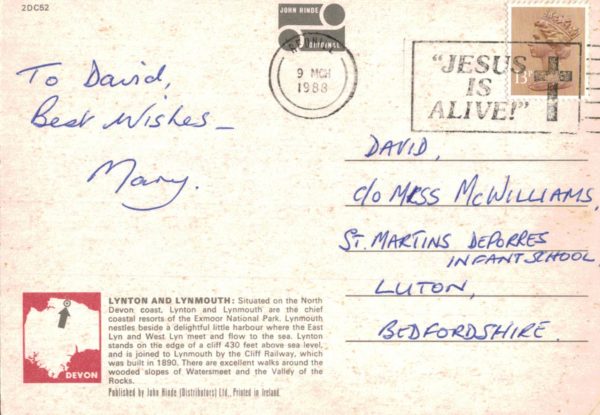 2DC52
JOHN HINDE
ORIGINAL
9 MCH
1988
"JESUS
IS
ALIVE!"
13P
To David,
Best Wishes –
Mary.
DAVID,
c/o MISS McWILLIAMS,
ST. MARTINS DEPORRES
INFANT SCHOOL,
LUTON,
BEDFORDSHIRE.
DEVON
LYNTON AND LYNMOUTH: Situated on the North
Devon coast, Lynton and Lynmouth are the chief
coastal resorts of the Exmoor National Park. Lynmouth
nestles beside a delightful little harbour where the East
Lyn and West Lyn meet and flow to the sea. Lynton
stands on the edge of a cliff 430 feet above sea level,
and is joined to Lynmouth by the Cliff Railway, which
was built in 1890. There are excellent walks around the
wooded slopes of Watersmeet and the Valley of the
Rocks.
Published by John Hinde (Distributors) Ltd., Printed in Ireland.